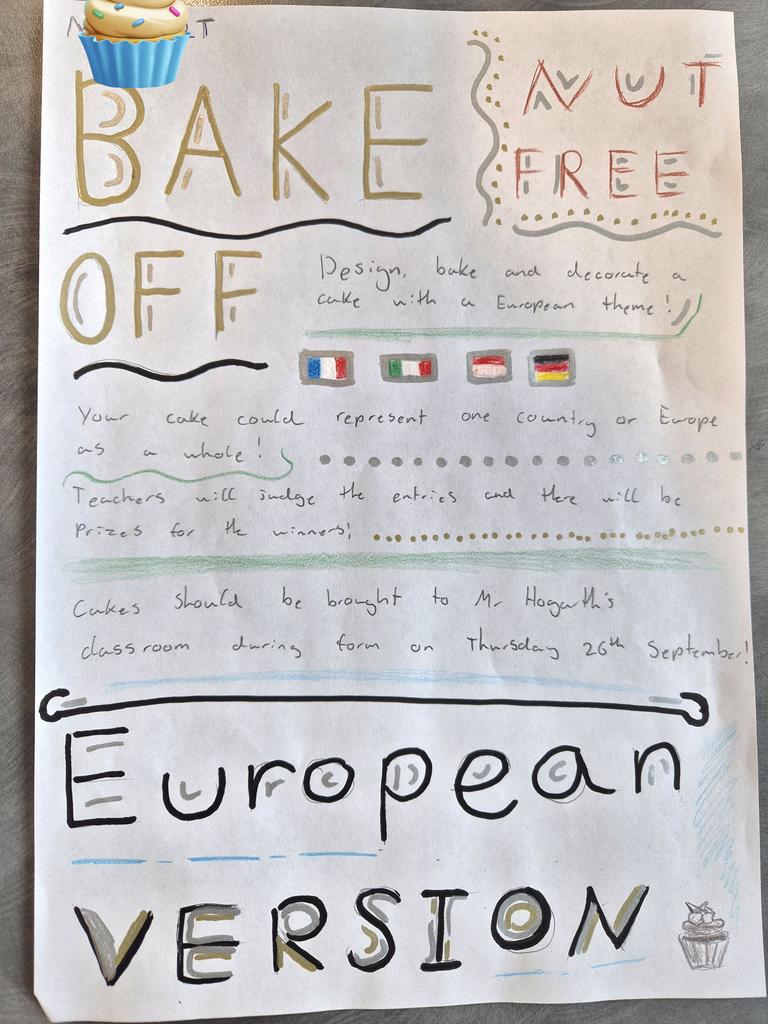 BAKE
OFF
NUT
FREE
Design, bake and decorate a
cake with a European theme!
Your cake could represent one country or Europe
as a whole!
Teachers will judge the entries and there will be
Prizes for the winners!
Cakes should be brought to Mr Hogarth's
classroom during form on Thursday 26th September!
European
VERSION